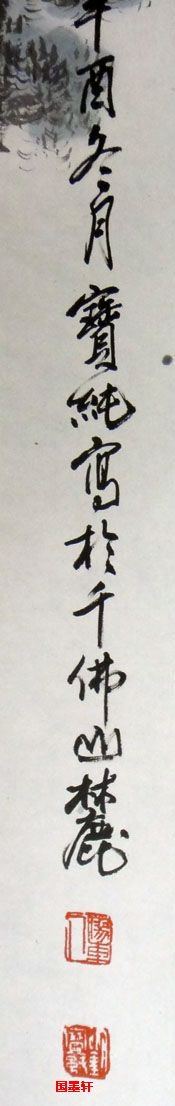 辛酉冬月寶純寫於千佛山麓
国墨轩